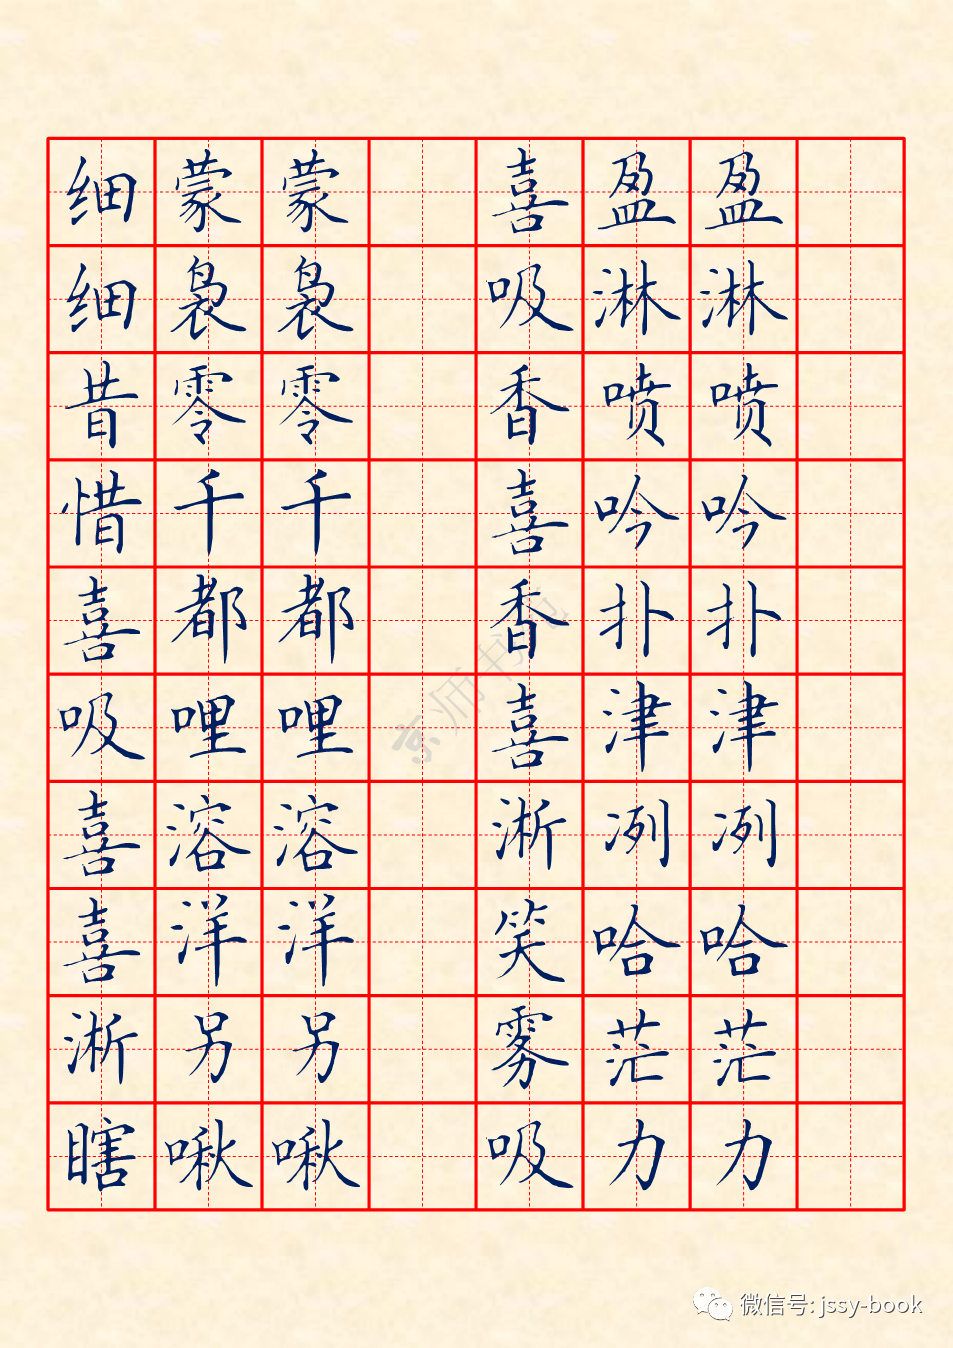 细蒙蒙 喜盈盈
细袅袅 吸淋淋
昔零零 香喷喷
惜千千 喜吟吟
喜都都 香扑扑
吸哩哩 喜津津
喜溶溶 淅冽冽
喜洋洋 笑哈哈
淅另另 雾茫茫
瞎啾啾 吸力力
京师书苑
微信号: jssy-book